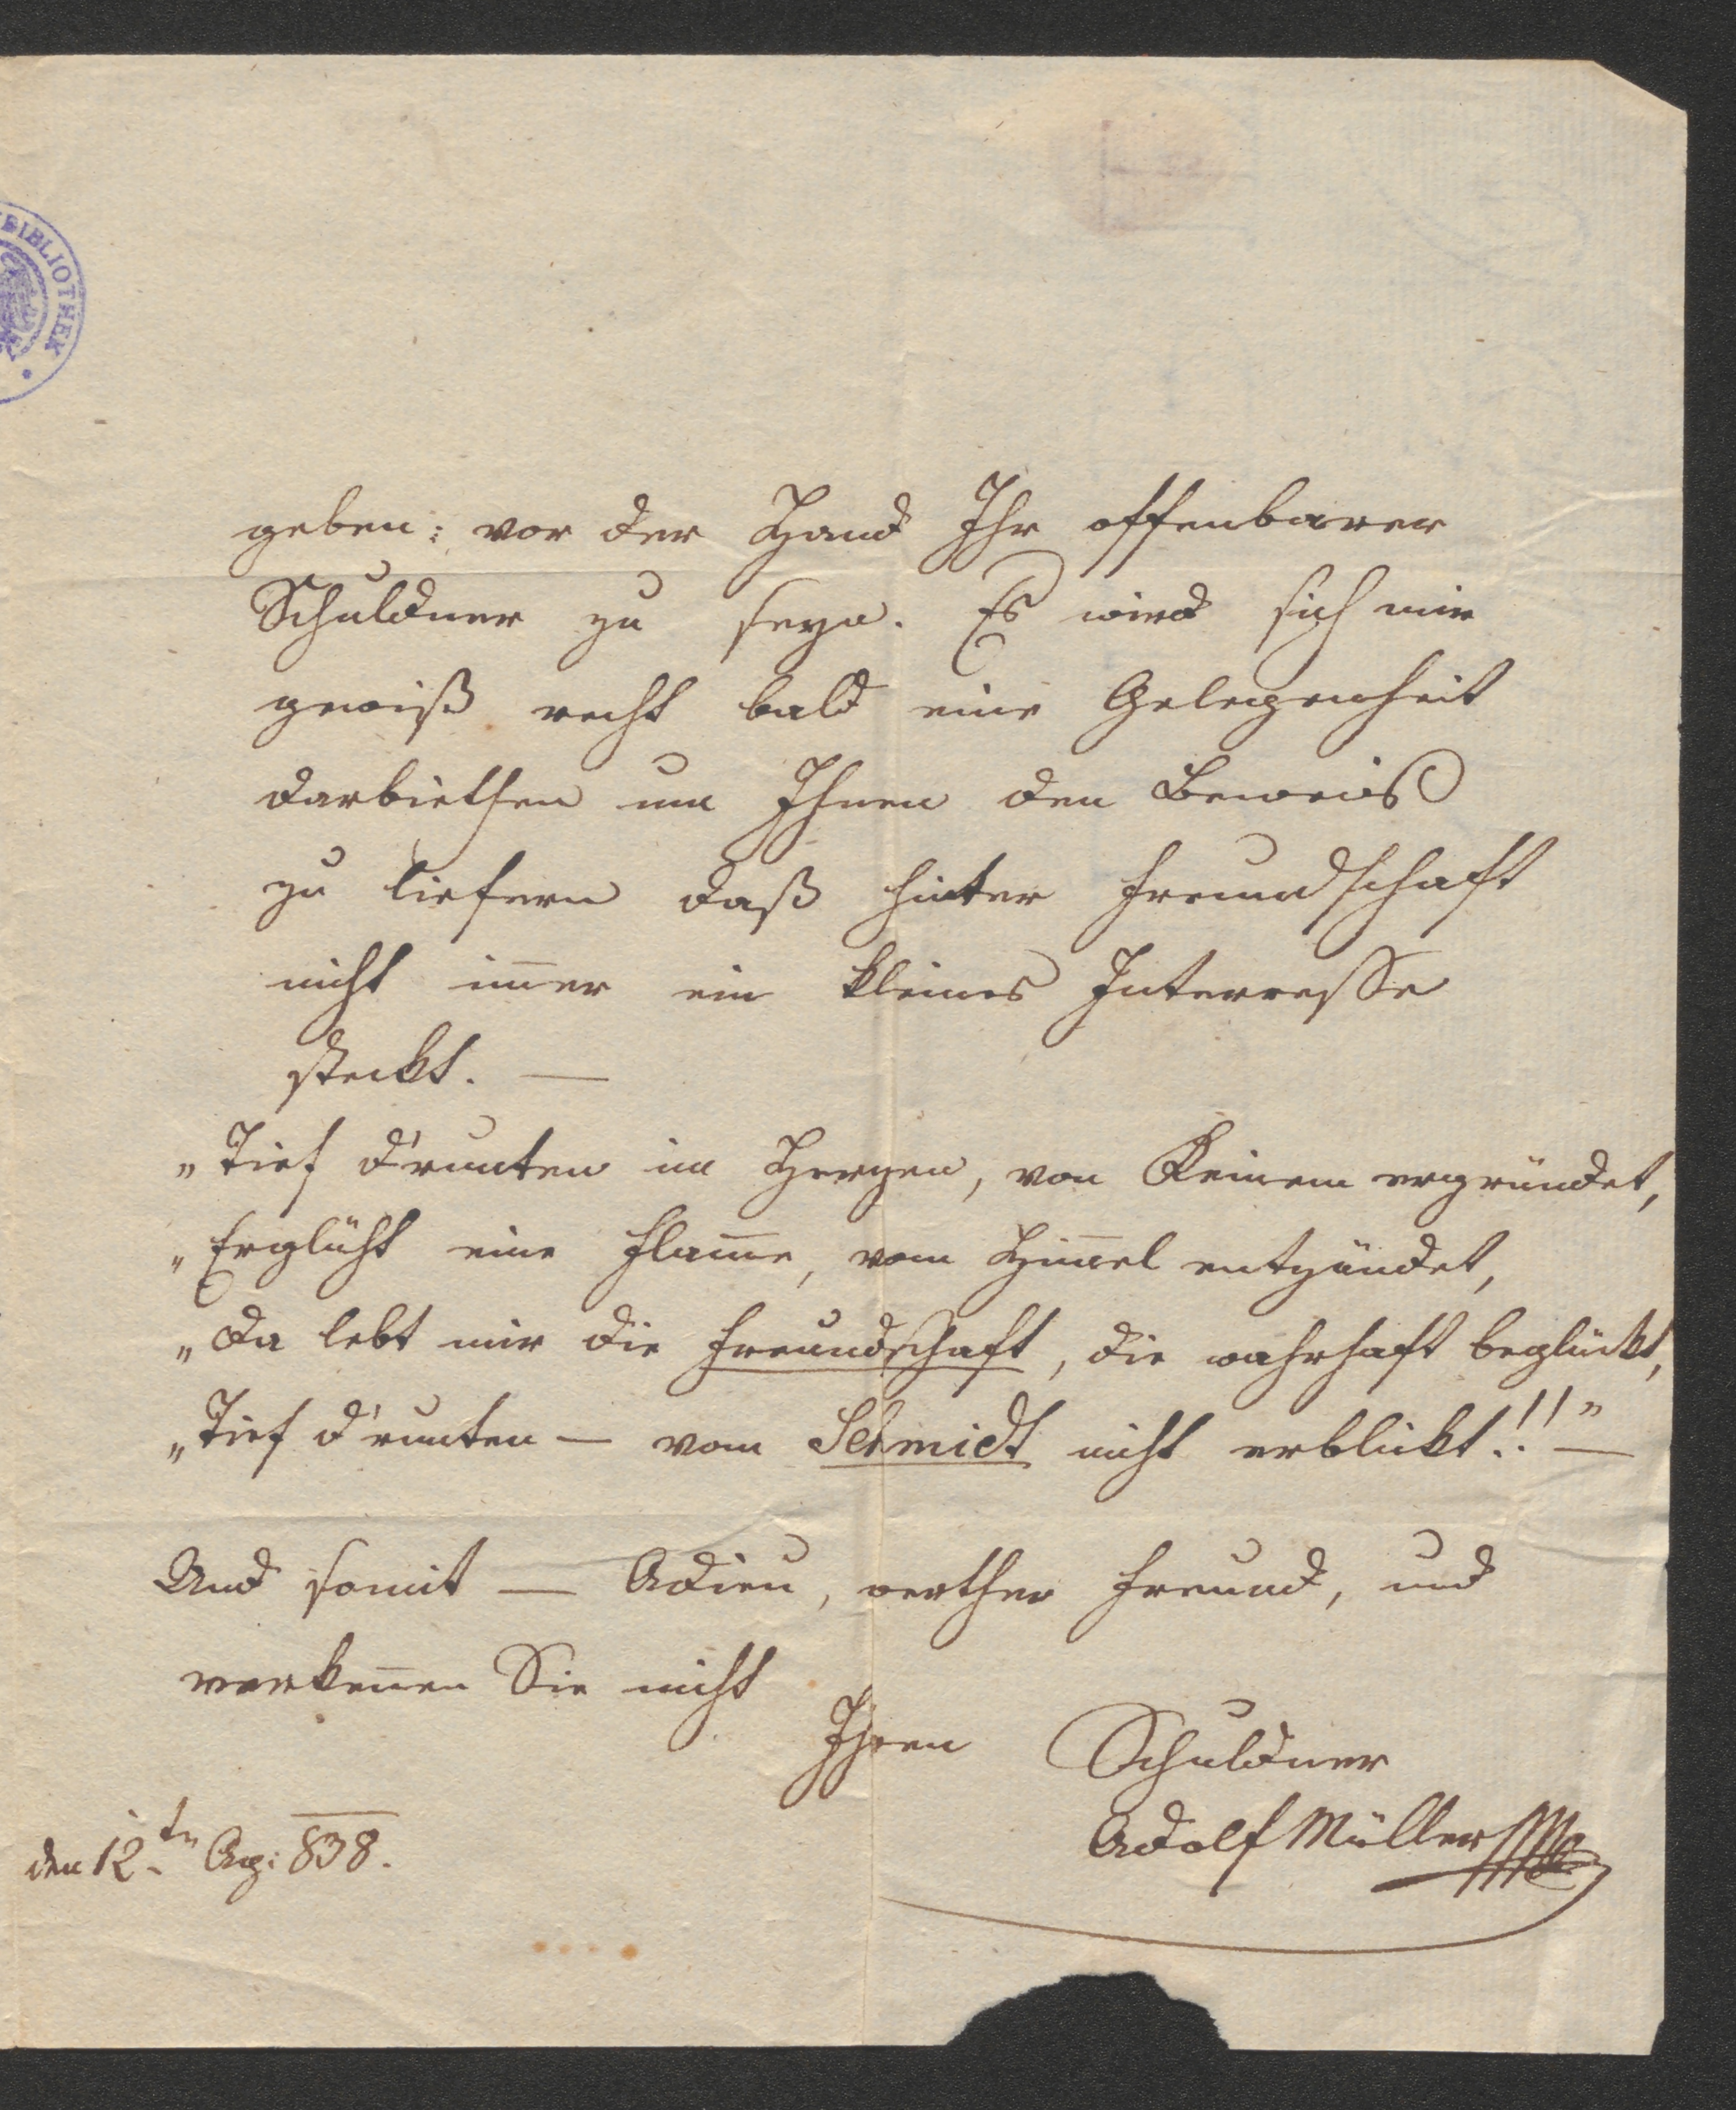 BIBLIOTHEK
geben: vor der Hand Ihr offenbarer
Schuldner zu seyn. Es wird sich mir
gewiß recht bald eine Gelegenheit
darbiethen um Ihnen den Beweis
zu liefern daß hinter Freundschaft
nicht im̅er ein kleines Interresse
steckt. —
„Tief d'runten im Herzen, von Keinem ergründet,
„Erglüht eine Flam̅e, vom Him̅el entzündet,
„Da lebt mir die Freundschaft, die wahrhaft beglückt,
„Tief d'runten — vom Schmidt nicht erblickt!!" —
Und somit — Adieu, werther Freund, und
verken̅en Sie nicht
Ihren Schuldner
Adolf Müller
den 12ten Aug: 838.